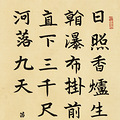 日照香爐生
看瀑布掛前
直下三千尺
河落九天